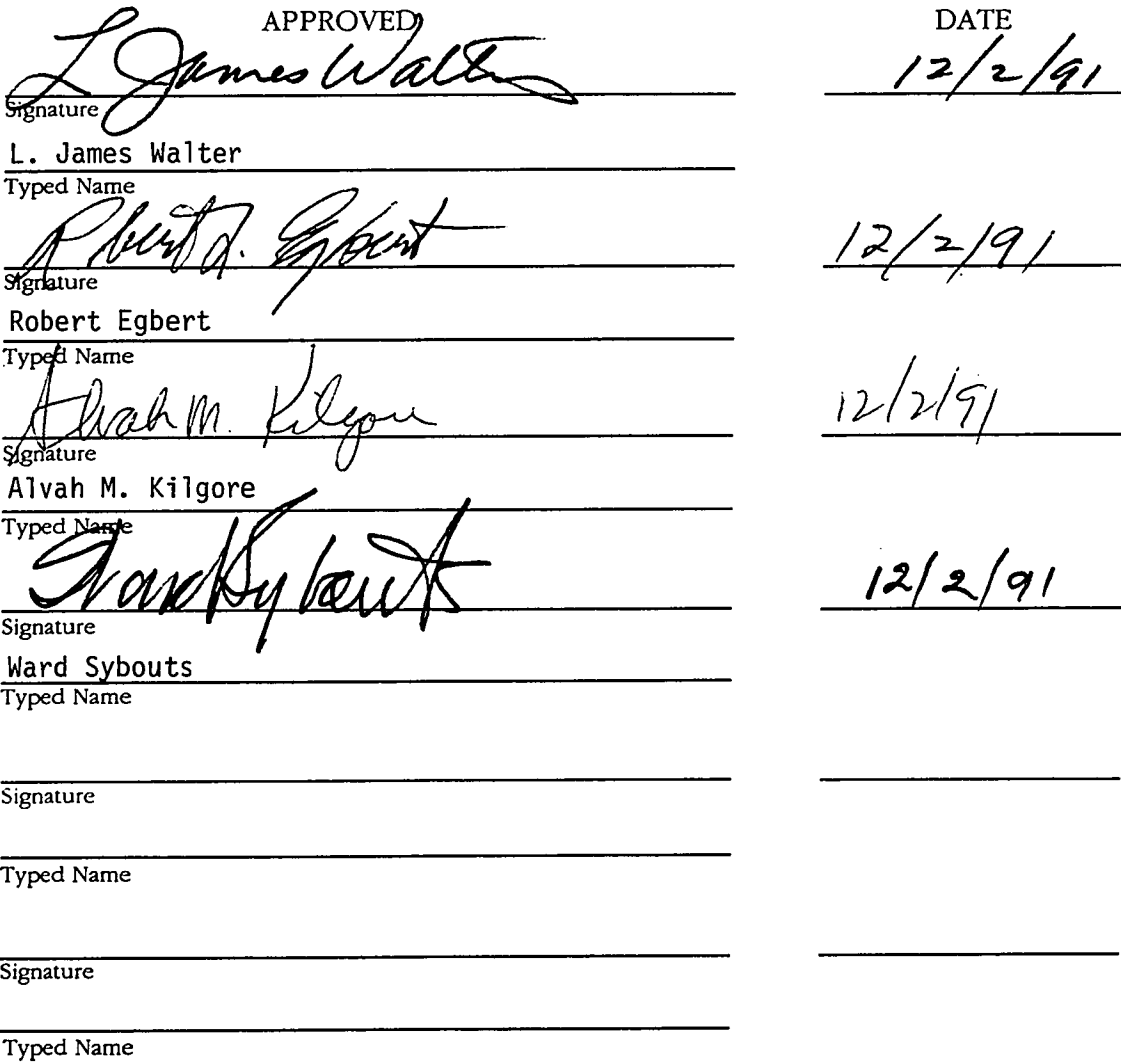 APPROVED DATE
L James Walter 12/2/91
Signature
L. James Walter
Typed Name
Robert L. Egbert 12/2/91
Signature
Robert Egbert
Typed Name
Alvah M. Kilgore 12/2/91
Signature
Alvah M. Kilgore
Typed Name
Ward Sybouts 12/2/91
Signature
Ward Sybouts
Typed Name
Signature
Typed Name
Signature
Typed Name